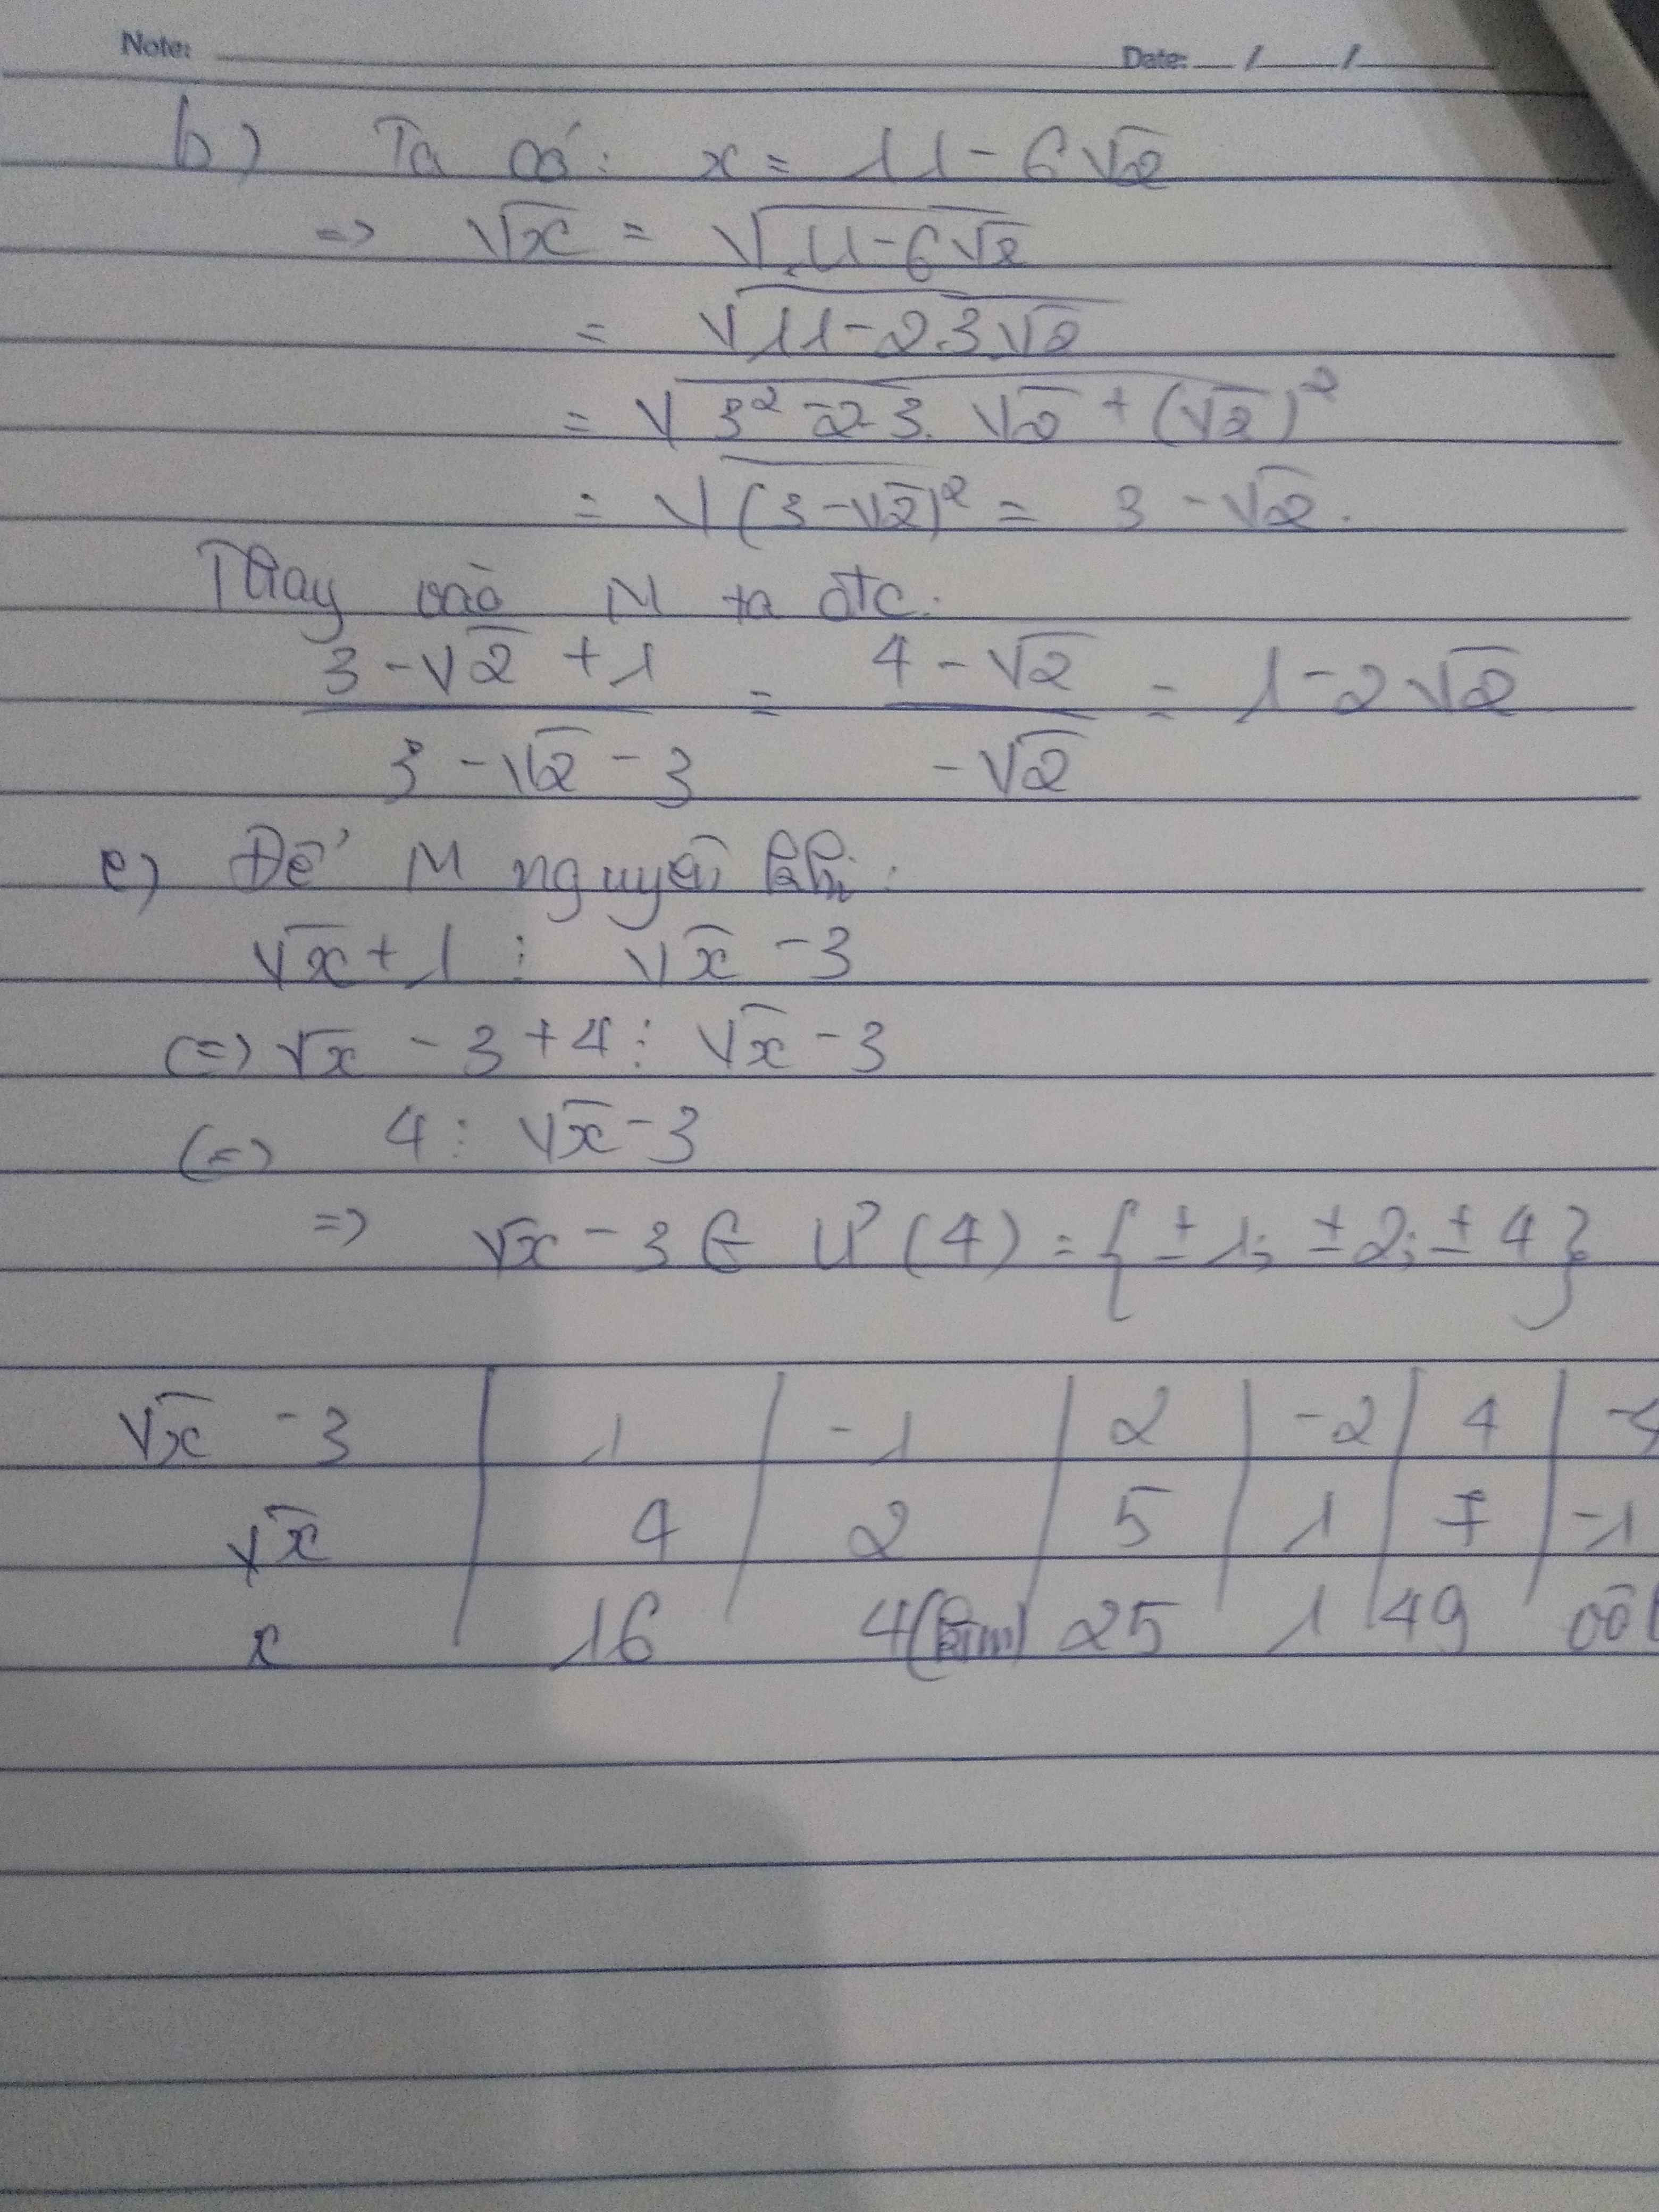 Note: Date: / /
b) Ta có: x = 11 - 6√2
=> √x = √(11 - 6√2)
= √(11 - 2.3√2)
= √(3² - 2.3.√2 + (√2)²)
= √((3 - √2)²) = 3 - √2.
Thay vào M ta đc:
(3 - √2 + 1)/(3 - √2 - 3) = (4 - √2)/(-√2) = 1 - 2√2
c) Để M nguyên khi:
√x + 1 ⋮ √x - 3
(=) √x - 3 + 4 ⋮ √x - 3
(=) 4 ⋮ √x - 3
=> √x - 3 ∈ Ư(4) = {±1; ±2; ±4}
√x - 3 | 1 | -1 | 2 | -2 | 4 | -4
√x | 4 | 2 | 5 | 1 | 7 | -1
x | 16 | 4 | 25 | 1 | 49